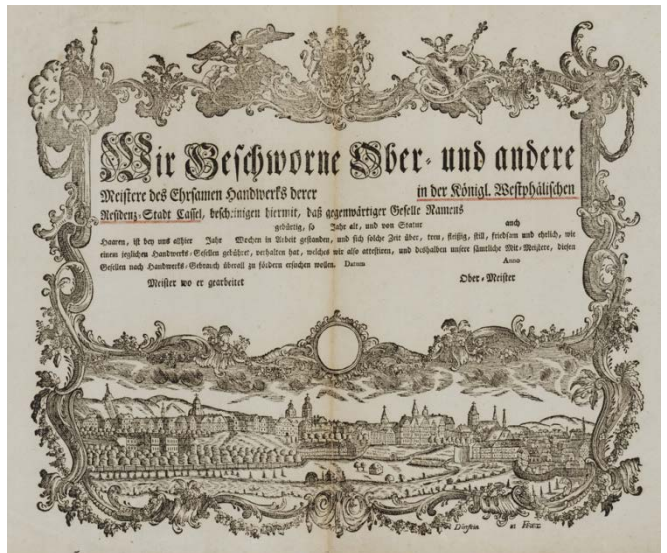 Wir Geschworne Ober- und andere
Meistere des Ehrsamen Handwerks derer in der Königl. Westphälischen
Residenz-Stadt Cassel, bescheinigen hiermit, daß gegenwärtiger Geselle Namens
gebürtig, so Jahr alt, und von Statur auch
Haaren, ist bey uns allhier Jahr Wochen in Arbeit gestanden, und sich solche Zeit über, treu, fleißig, still, friedsam und ehrlich, wie
einem jeglichen Handwerks-Gesellen gebühret, verhalten hat, welches wir also attestiren, und deshalben unsere sämtliche Mit-Meistere, diesen
Gesellen nach Handwerks-Gebrauch überall zu fördern ersuchen wollen. Datum Anno
Meister wo er gearbeitet Ober-Meister